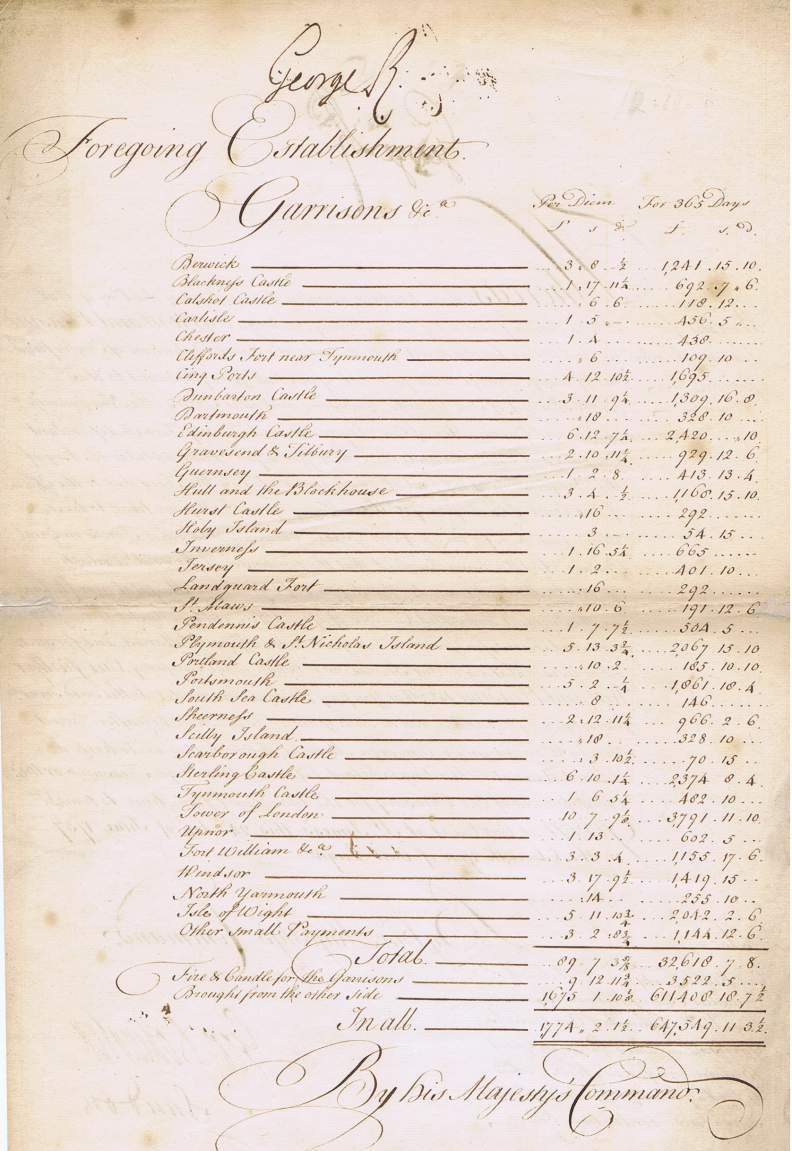 George R.
Foregoing Establishment.
Garrisons &c.a Per Diem For 365 Days
£ s d. £. s. d.
Berwick 3. 8. ½ 1,241. 15. 10.
Blackness Castle 1. 17. 11¼ 692. 7. 6.
Calshot Castle 6. 6. 118. 12.
Carlisle 1. 5. 456. 5.
Chester 1. 4. 438.
Cliffords Fort near Tynmouth 6. 109. 10.
Cinq Ports 4. 12. 10½ 1,695.
Dunbarton Castle 3. 11. 9¼ 1,309. 16. 8.
Dartmouth 18. 328. 10.
Edinburgh Castle 6. 12. 7¼ 2,420. 10.
Gravesend & Tilbury 2. 10. 11¼ 929. 12. 6
Guernsey 1. 2. 8. 413. 13. 4
Hull and the Blockhouse 3. 4. ½ 1,168. 15. 10
Hurst Castle 16 292.
Holy Island 3 54. 15.
Inverness 1. 16. 5¼ 665.
Jersey 1. 2. 401. 10.
Landguard Fort 16. 292.
St. Maws 10. 6 191. 12. 6
Pendennis Castle 1. 7. 7½ 504. 5.
Plymouth & St. Nicholas Island 5. 13. 3¾ 2,067. 15. 10
Portland Castle 10. 2. 185. 10. 10.
Portsmouth 5. 2. ¼ 1,861. 18. 4.
South Sea Castle 8. 146.
Sheerness 2. 12. 11¼ 966. 2. 6.
Scilly Island 18. 328. 10.
Scarborough Castle 3. 10½ 70. 15.
Sterling Castle 6. 10. 1¼ 2374. 8. 4.
Tynmouth Castle 1. 6. 5¼ 482. 10.
Tower of London 10. 7. 3791. 11. 10.
Upnor 1. 13. 602. 5.
Fort William &c.a 3. 3. 4. 1,155. 17. 6
Windsor 3. 17. 9½ 1,419. 15.
North Yarmouth 14. 255. 10.
Isle of Wight 5. 11. 10¾ 2,042. 2. 6.
Other small Payments 3. 2. 8¾ 1,144. 12. 6.
Total. 89. 7. 32,618. 7. 8.
Fire & Candle for the Garrisons 9. 12. 11¾ 3,522. 5.
Brought from the other side 1675. 1. 611408. 18. 7½
In all. 1,774. 2. 1½ 647,549. 11. 3½
By His Majesty's Command.